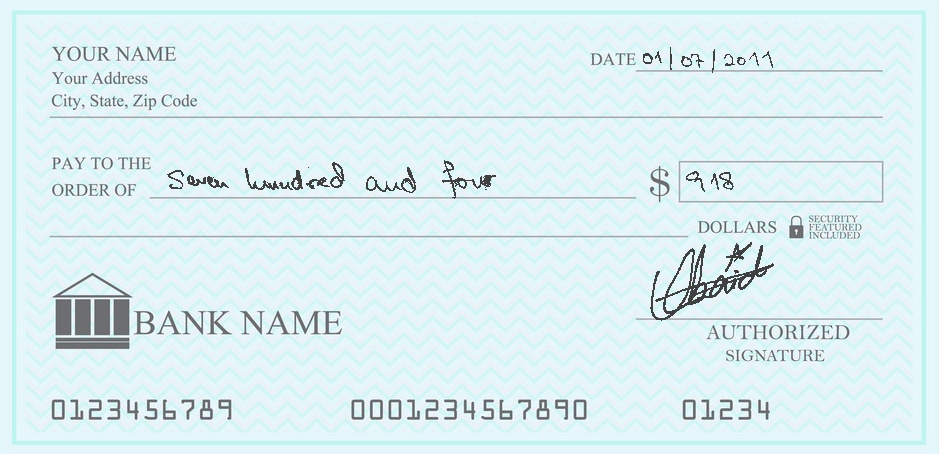 YOUR NAME
Your Address
City, State, Zip Code
DATE 01/07/2011
PAY TO THE
ORDER OF Seven hundred and four $ 918
DOLLARS SECURITY
FEATURED
INCLUDED
BANK NAME
Obaid
AUTHORIZED
SIGNATURE
0123456789 0001234567890 01234